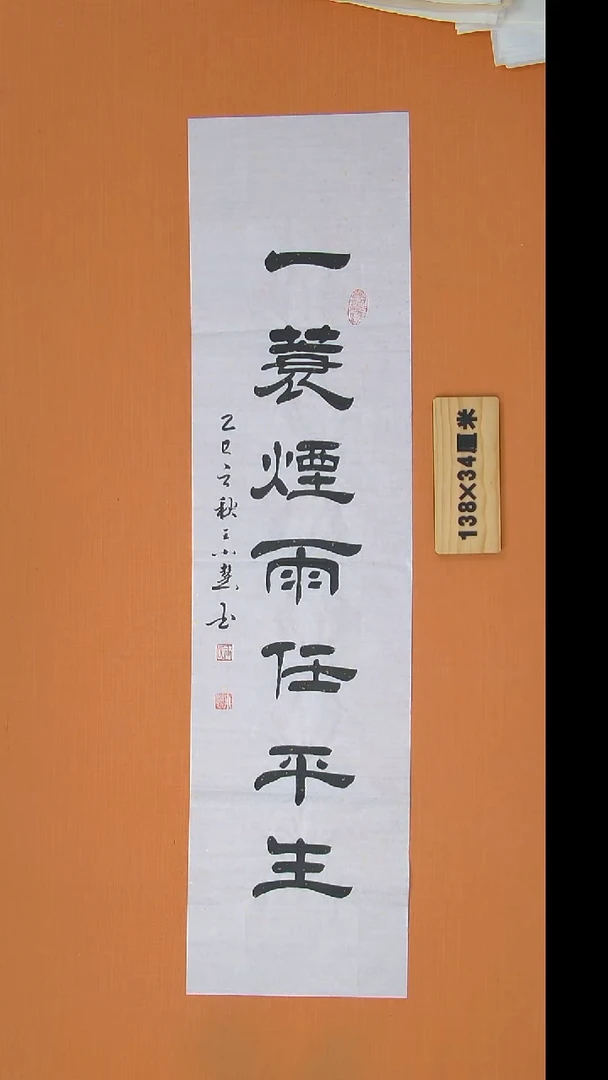 一蓑煙雨任平生
乙巳之秋王小慧书
138×34厘米